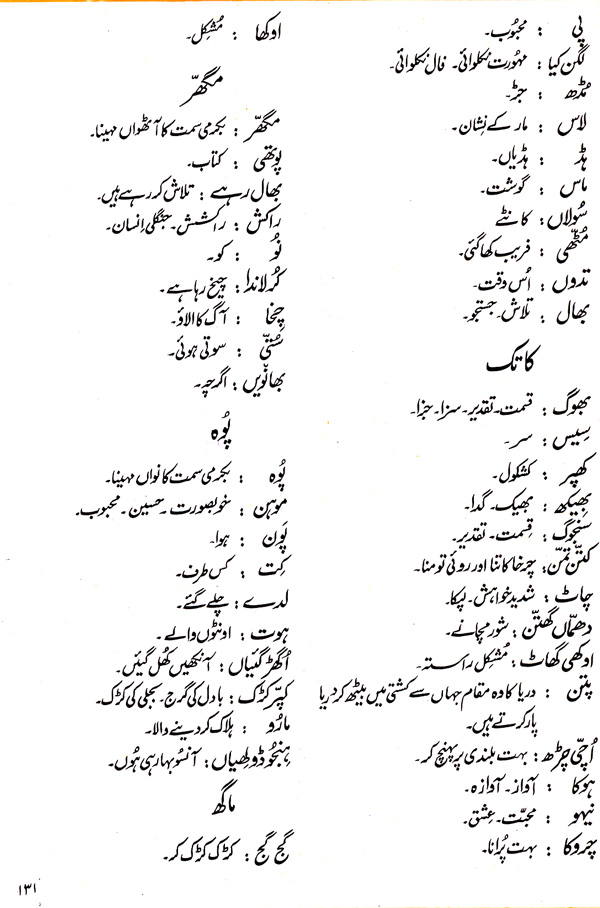 پی : محبُوب۔
لگن کیا : مہورت نکلوائی۔ فال نکلوائی۔
مُڈھ : جڑ۔
لاس : مار کے نِشان۔
ہڈ : ہڈیاں۔
ماس : گوشت۔
سُولاں : کانٹے
مُٹھی : فریب کھا گئی۔
تدوں : اُس وقت۔
بھال : تلاش۔ جستجو۔
کاتک
بھوگ : قسمت۔ تقدیر۔ سزا۔ جزا۔
سِیس : سر۔
کھپر : کشکول۔
بھیکھ : بھیک۔ گدا۔
سنجوگ : قِسمت۔ تقدیر۔
کتّن تمّن : چرخا کاتنا اور روئی تومنا۔
چاٹ : شدید خواہش۔ لپکا۔
دھمّاں گھتّن : شور مچانے۔
اوکھی گھاٹ : مُشکِل راستہ۔
پتن : دریا کا وہ مقام جہاں سے کشتی میں بیٹھ کر دریا
پار کرتے ہیں۔
اُچّی چڑھ : بہت بلندی پر پہنچ کر۔
ہوکا : آواز۔ آوازہ۔
نیہو : محبّت۔ عِشق۔
چروکا : بہت پُرانا۔
اوکھا : مُشکِل۔
مگھّر
مگھّر : بکرمی سمت کا آٹھواں مہینا۔
پوتھی : کتاب۔
بھال رہے : تلاش کر رہے ہیں۔
راکش : راکشش۔ جنگلی اِنسان۔
نُو : کو۔
کُرلاندا : چیخ رہا ہے۔
چِخا : آگ کا الاؤ۔
سُتّی : سوتی ہوئی۔
بھانویں : اگرچہ۔
پُوہ
پُوہ : بکرمی سمت کا نواں مہینا۔
موہن : خوبصورت۔ حسین۔ محبوب۔
پَون : ہوا۔
کِت : کس طرف۔
لدے : چلے گئے۔
ہوت : اونٹوں والے۔
اُگھڑ گئیاں : آنکھیں کُھل گئیں۔
کپّر کڑک : بادل کی گرج۔ بجلی کی کڑک۔
مارُو : ہلاک کر دینے والا۔
ہنجُو ڈولھیاں : آنسُو بہا رہی ہُوں۔
ماگھ
گج گج : کڑک کڑک کر۔
۱۳۱